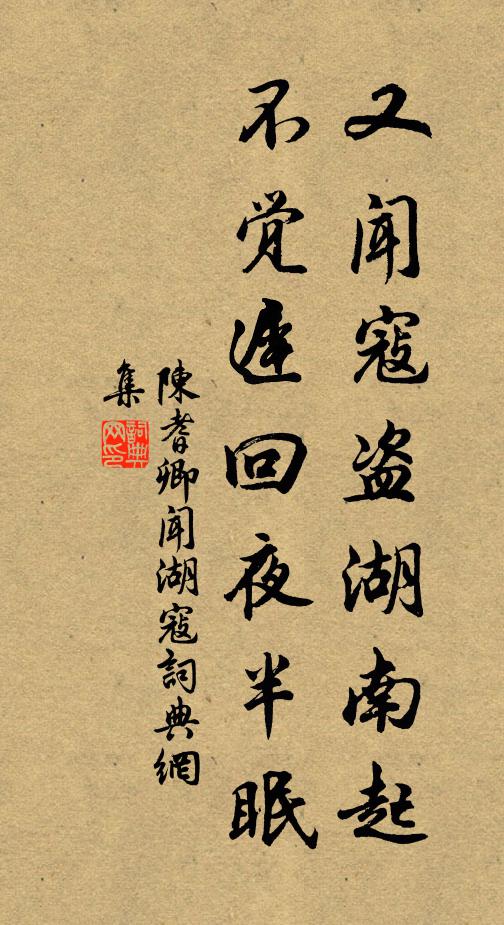 又闻寇盗湖南起
不觉迟回夜半眠
陳耆卿闻湖寇詞典網
集
詞典网印